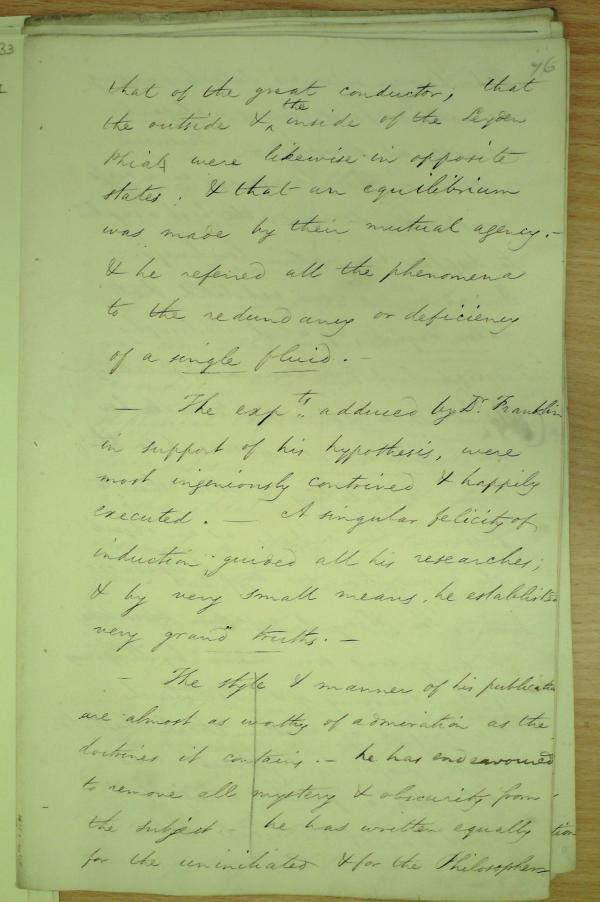 33
76
that of the great conductor; that
the outside & the inside of the Leyden
Phials were likewise in opposite
states. & that an equilibrium
was made by their mutual agency. -
& he referred all the phenomena
to the redundancy or deficiency
of a single fluid. -
- The expts. adduced by Dr. Franklin
in support of his hypothesis, were
most ingeniously contrived & happily
executed. - A singular felicity of
induction guided all his researches;
& by very small means, he established
very grand truths. -
- The style & manner of his publication
are almost as worthy of admiration as the
doctrines it contains. - he has endeavoured
to remove all mystery & obscurity from
the subject he has written equally
for the uninitiated & for the Philosopher